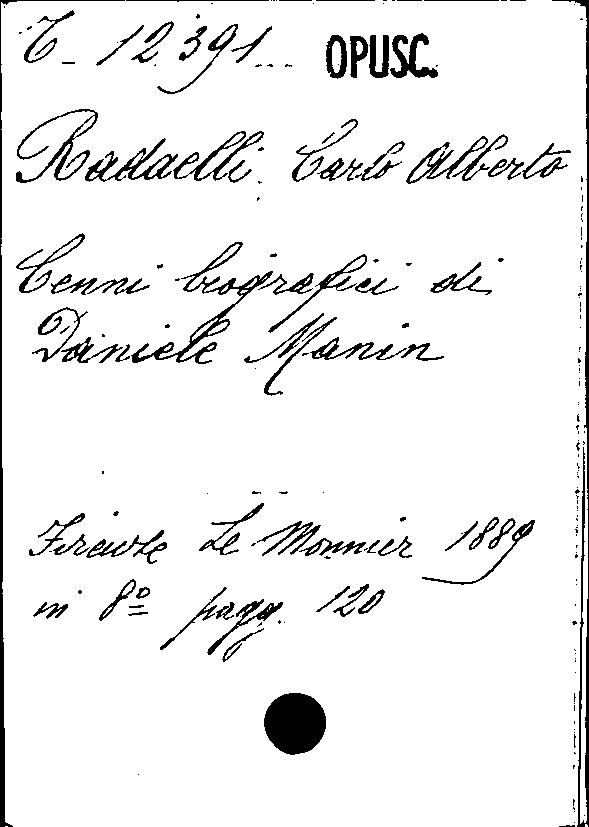 T- 12391... OPUSC.
Radaelli Carlo Alberto
Cenni biografici di
Daniele Manin
Firenze Le Monnier 1889
in 8º pagg. 120